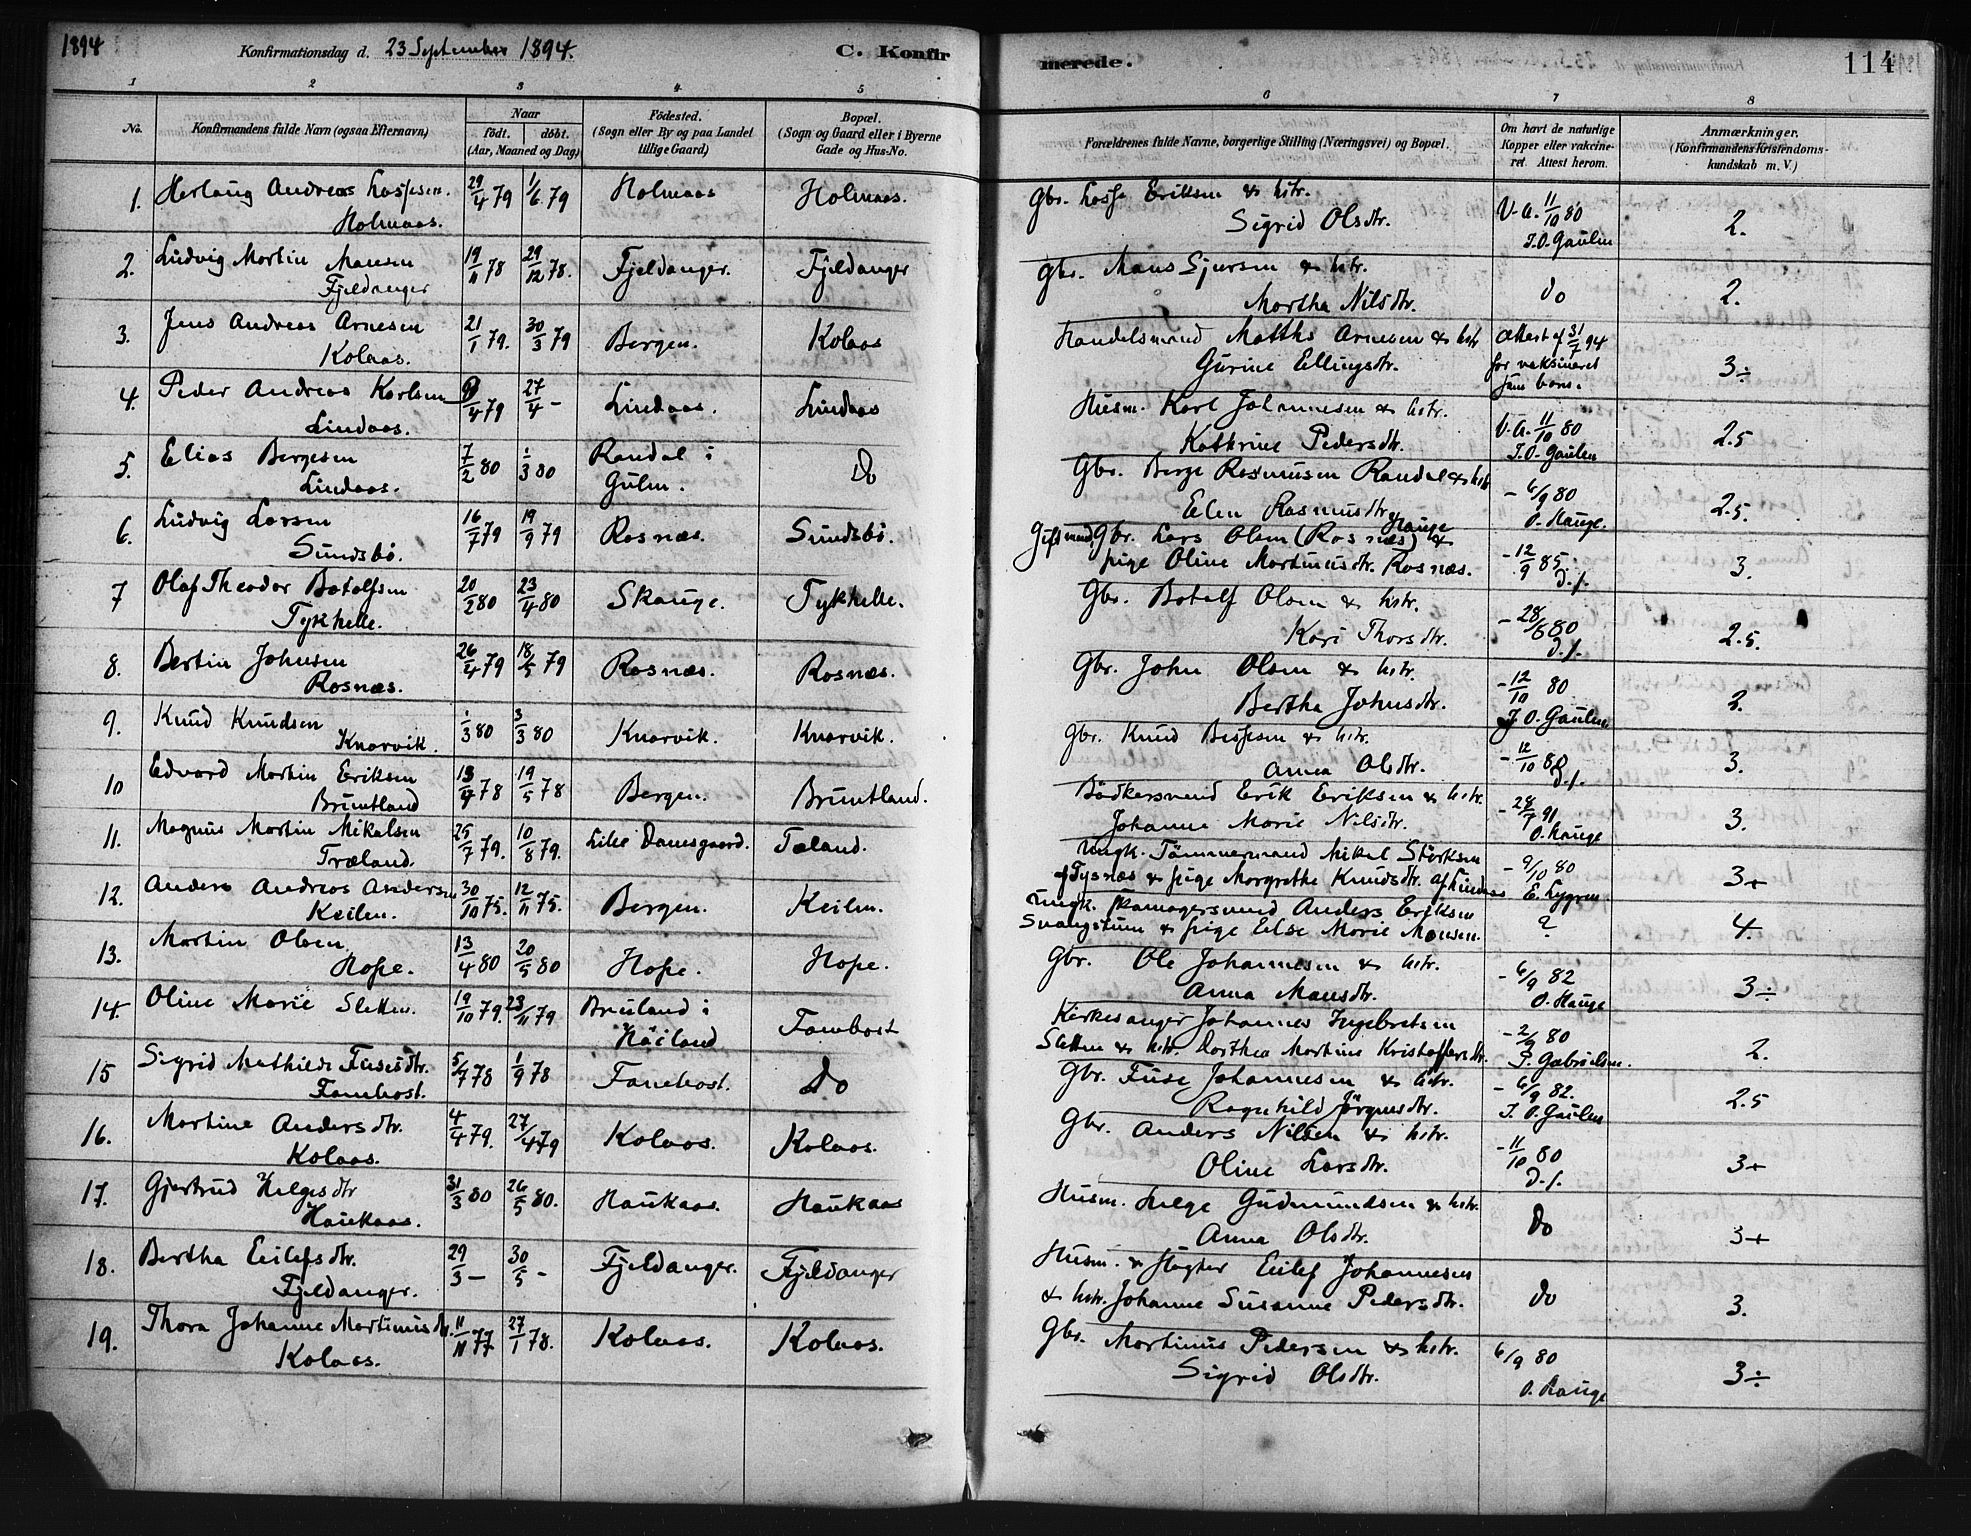 1894
Konfirmationsdag d. 23 September 1894.
C. Konfirmerede.
114
1 2 3 4 5 6 7 8
No.
Konfirmandens fulde Navn (ogsaa Efternavn)
Naar
født. døbt.
(Aar, Maaned og Dag)
Fødested.
(Sogn eller By og paa Landet tillige Gaard)
Bopæl.
(Sogn og Gaard eller i Byerne Gade og Hus-No.
Forældrenes fulde Navne, borgerlige Stilling (Næringsvei) og Bopæl.
Om havt de naturlige Kopper eller vakcineret. Attest herom.
Anmærkninger.
(Konfirmandens Kristendomskundskab m. V.)
1. Herlaug Andreas Lassesen Holmaas. 29/4 79 1/6 79 Holmaas Holmaas. Gbr. Lasse Eriksen & hstr. Sigrid Olsdtr. V.A. 11/10 80 J.O. Gaulen 2.
2. Ludvig Martin Mansen Fjeldanger 19/11 78 29/12 78. Fjeldanger. Fjeldanger Gbr. Mans Sjursen & hstr. Martha Nilsdtr. do 2.
3. Jens Andreas Arnesen Kolaas. 21/1 79. 30/3 79 Bergen. Kolaas Handelsmand Matths Arnesen & hstr Gurine Ellingsdtr. Attest af 31/7 94 for vaksineret som barn. 3÷
4. Peder Andreas Karlsen Lindaas. /4 79 27/4 - Lindaas. Lindaas Husm. Karl Johannesen & hstr. Kathrine Pedersdtr. V.A. 11/10 80 J.O. Gaulen 2.5
5. Elias Bergesen Lindaas. 7/2 80 1/3 80 Randal i Gulen. Do Gbr. Berge Rasmusen Randal & hstr Elen Rasmusdtr - 6/9 80 O. Hauge. 2.5.
6. Ludvig Larsen Sundsbø. 16/7 79 19/9 79 Rosnæs. Sundsbø. Gift mand Gbr. Lars Olsen (Rosnæs) Hauge & pige Oline Martinusdtr. Rosnæs. - 12/9 85. d.s. 3.
7 Olaf Theodor Botolfsen Tykhelle. 20/2 80 23/4 80 Skauge. Tykhelle. Gbr. Botolf Olsen & hstr. Kari Thorsdtr. - 28/8 80 d.s. 2.5.
8. Bertin Johnsen Rosnæs. 26/4 79 18/5 79 Rosnæs. Rosnæs. Gbr. John Olsen & hstr. Bertha Johnsdtr. - 12/10 80 J.O. Gaulen 2.
9. Knud Knudsen Knarvik. 1/3 80 3/3 80 Knarvik. Knarvik. Gbr. Knud Bessesen & hstr. Anna Olsdtr. - 12/10 80 d.s. 3.
10 Edvard Martin Eriksen Bruntland 13/4 78 19/5 78 Bergen. Bruntland. Bødkersvend Erik Eriksen & hstr. Johanne Marie Nilsdtr. - 28/7 91 O. Hauge 3.
11. Magnus Martin Mikalsen Træland. 25/7 79. 10/8 79. Lille Damsgaard. Tæland. Ungk. Tømmermand Mikal Størksen af Tysnæs & pige Margrethe Knudsdtr. af Lindaas - 9/10 80 E. Lygren 3+
12. Anders Andreas Andersen Keilen. 30/10 75. 12/11 75. Bergen. Keilen. Ungk. skomagersvend Anders Eriksen Svangstun & pige Else Marie Monsen. ? 4.
13. Martin Olsen Hope. 13/4 80 20/5 80 Hope. Hope. Gbr. Ole Johannesen & hstr. Anna Mansdtr. - 6/9 82 O. Hauge 3÷
14 Oline Marie Sletten. 19/10 79. 23/11 79 Bruland i Høiland Fanebost Kirkesanger Johannes Ingebretsen Sletten & hstr. Dorthea Martine Kristoffersdtr. - 2/9 80 P. Gabrielsen. 2.
15 Sigrid Mathilde Fusesdtr. Fanebost. 5/7 78 1/9 78 Fanebost. Do Gbr. Fuse Johannesen & hstr. Ragnhild Jørgensdtr. - 6/9 82. J.O. Gaulen 2.5
16. Martine Andersdtr. Kolaas. 4/4 79. 27/4 79 Kolaas. Kolaas. Gbr. Anders Nilsen & hstr. Oline Larsdtr. - 11/10 80 d.s. 3+
17. Gjertrud Helgesdtr Haukaas. 31/3 80 26/5 80. Haukaas. Haukaas Husm. Helge Gudmundsen & hstr. Anna Olsdtr. Do 3+
18. Bertha Eilefsdtr. Fjeldanger. 29/3 - 30/5 - Fjeldanger. Fjeldanger Husm. & slagter Eilef Johannesen & hstr. Johanne Susanne Pedersdtr. do 3.
19. Thora Johanne Martinusdtr. Kolaas. 11/11 77 27/1 78. Kolaas. Kolaas. Gbr. Martinus Pedersen & hstr. Sigrid Olsdtr. 6/9 80 O. Hauge 3÷